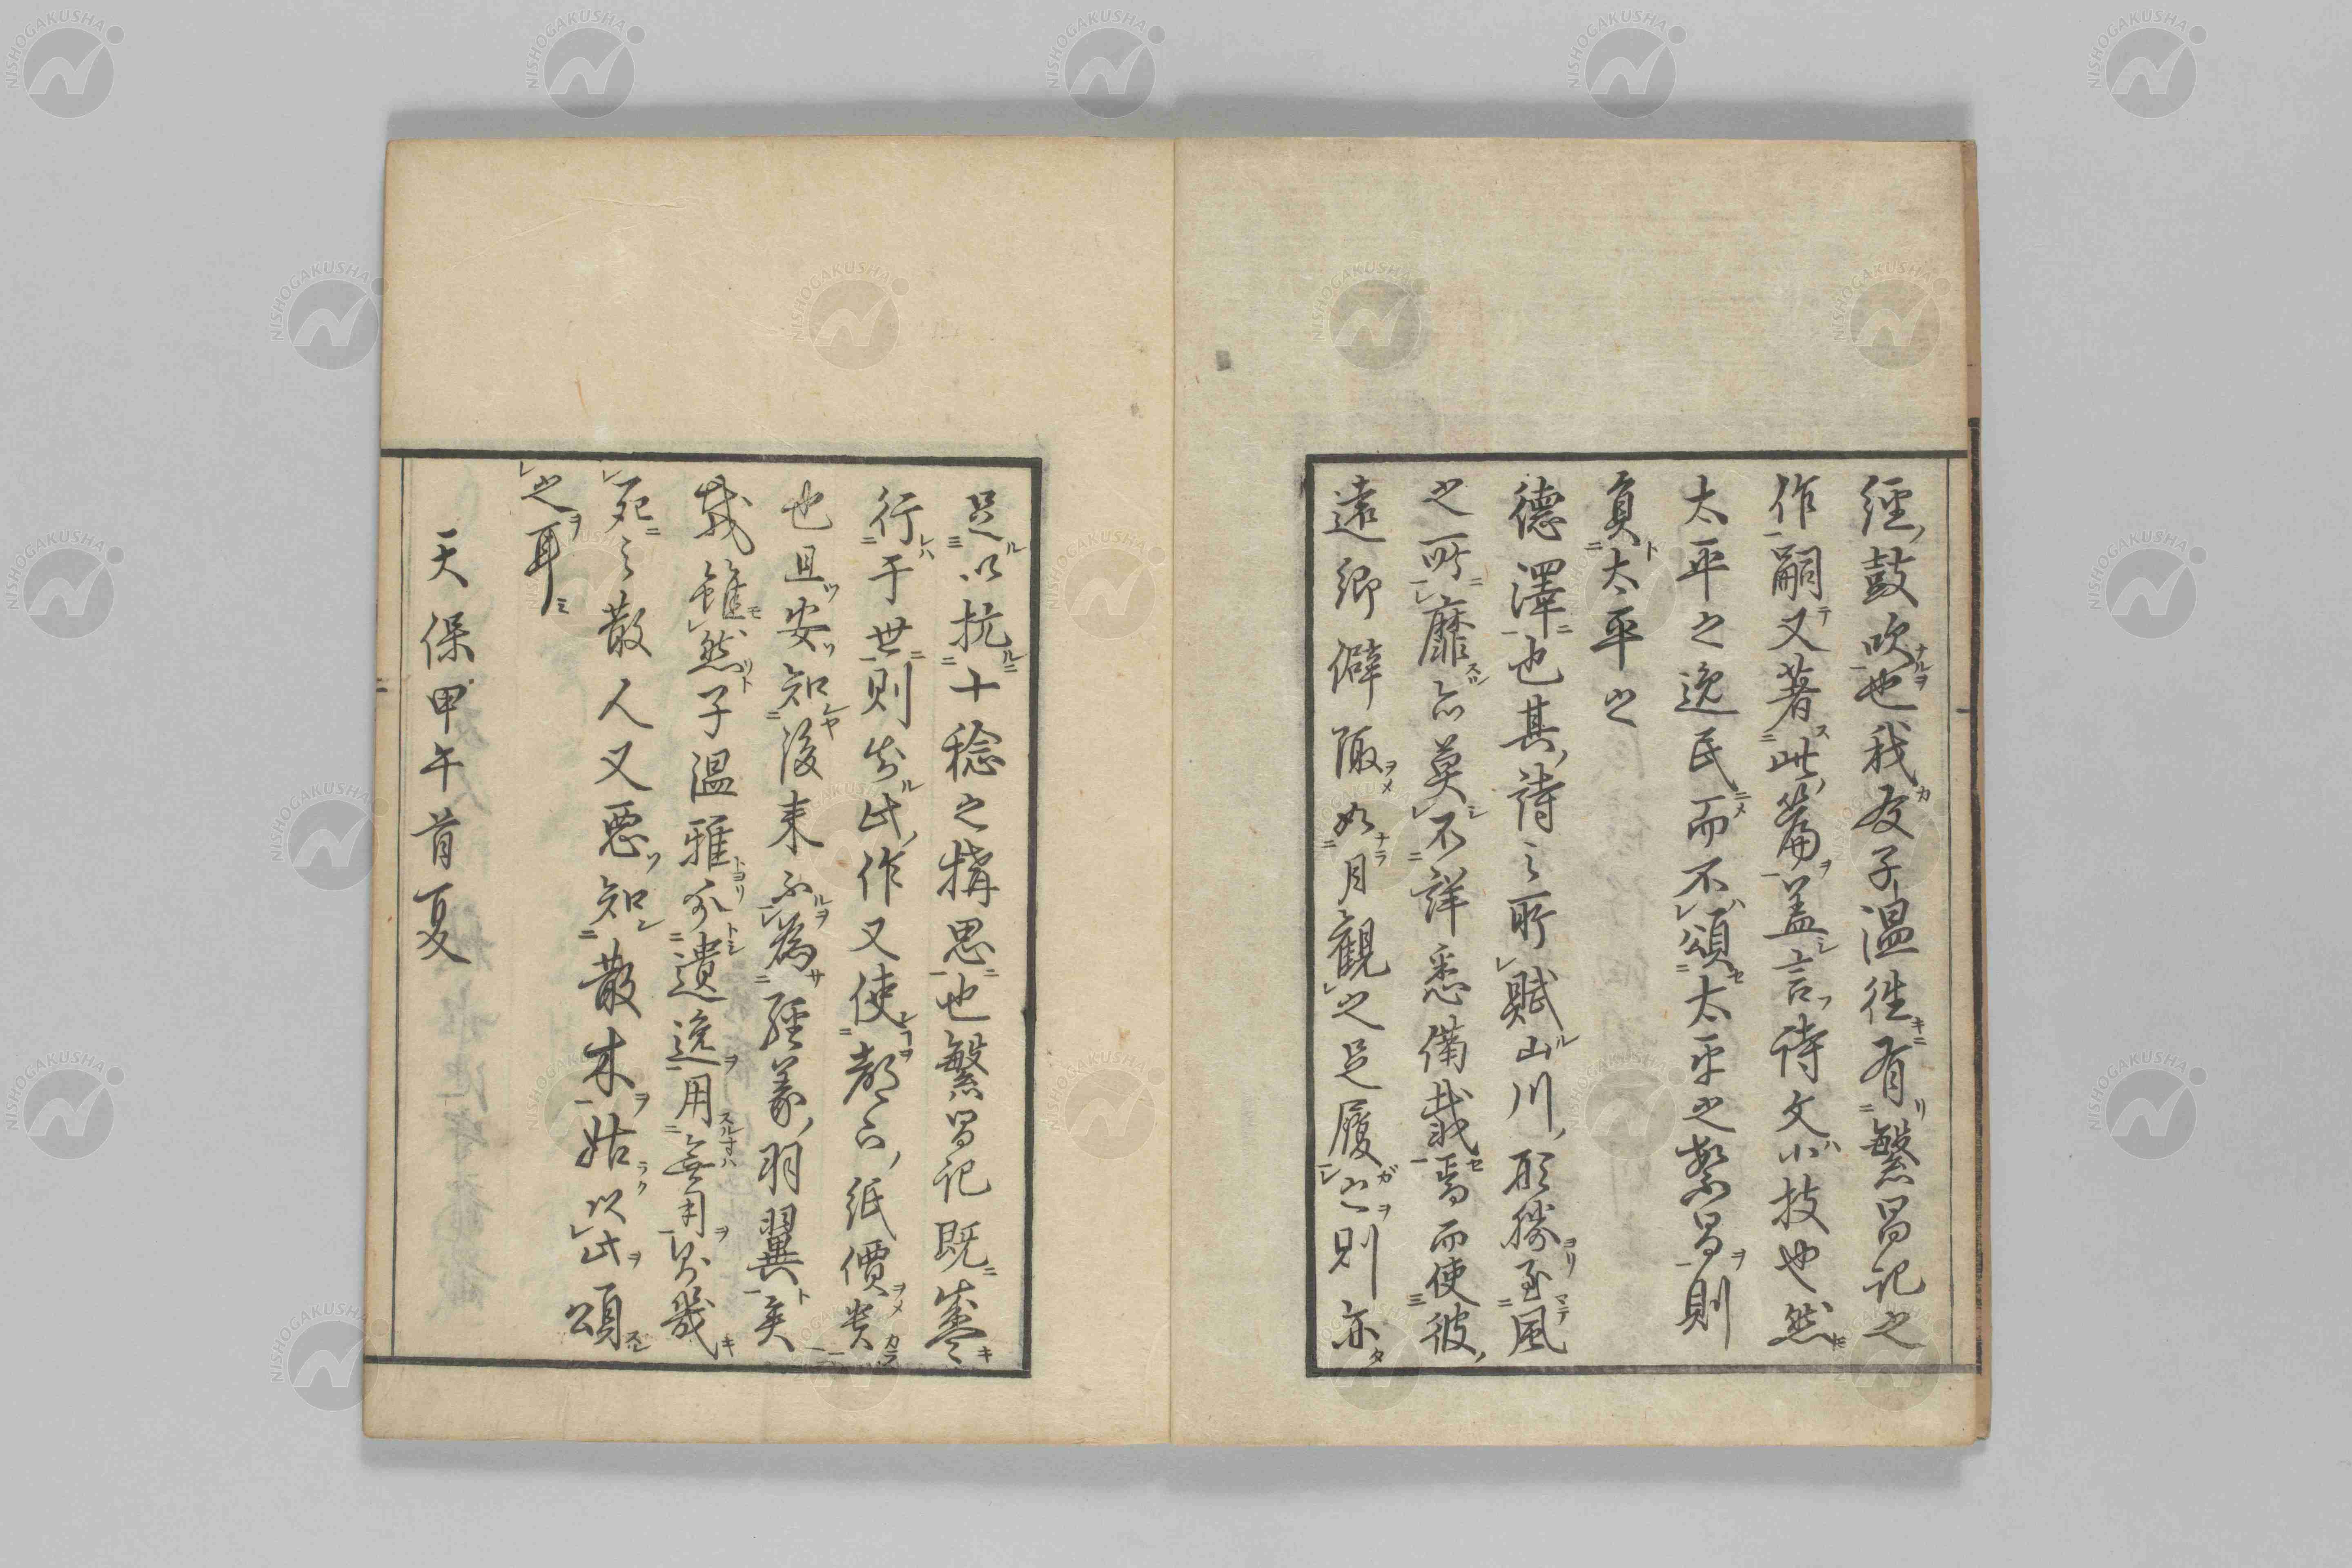 經鼓吹也我友子温徃有繁昌記之
作嗣又著此篇盖言詩文小技也然
太平之逸民而不頌太平之繁昌則
負太平之
德澤也其詩之所賦山川形勝至風
之所靡亦莫不詳悉備載焉而使彼
遠郷僻陬如目觀之足履之則亦
足以抗十稔之構思也繁昌記既盛
行于世則如此作又使都下紙價貴
也且安知後来不為經義羽翼矣
哉雖然子温雅不遺逸用無用以幾
死之散人又悪知散木姑以此頌
之耳
天保甲午首夏
NISHOGAKUSHA